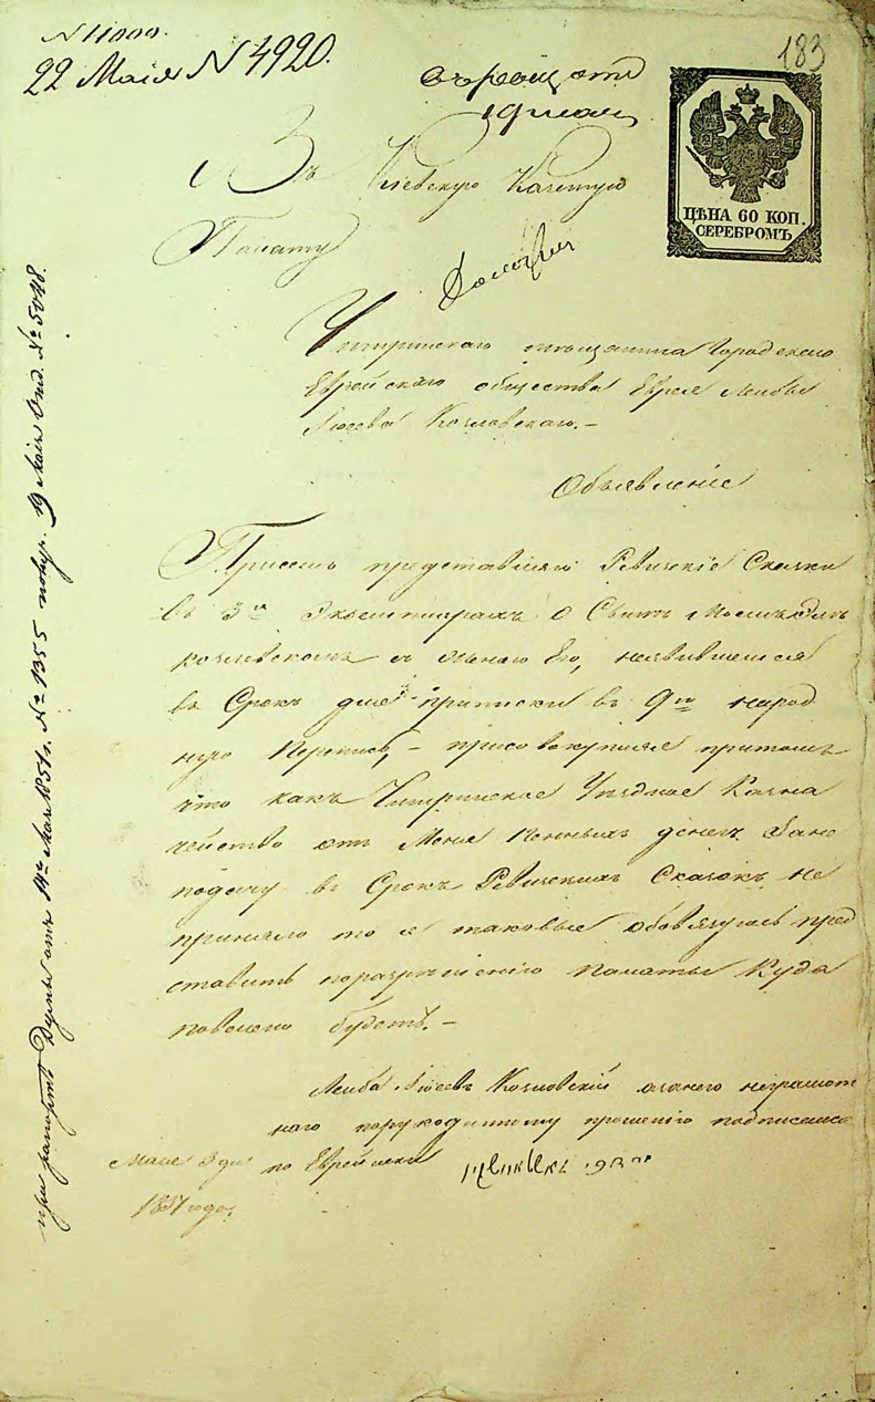 N 11000.
22 Маія N 4920.
183
ЦѢНА 60 КОП.
СЕРЕБРОМЪ
Въ Кіевскую Казенную
Палату
Чигринскаго мещанина Городскаго
Еврейскаго общества Еврея Лейбы
Іосева Козловскаго. –
Объявленіе
Присемъ представляю Ревизскіе Сказки
въ 3хъ Экземплярахъ о Сынѣ Моемъ
козловскомъ и сынаго Его, неявившемся
въ Срокъ для приписки въ 9ю народ
ную Перепись, – присовокупляя притомъ
что какъ Чигринское Уездное Казна
чейство отъ Меня Пенныхъ денегъ Зане
подачу въ Срокъ Ревизскихъ Сказокъ не
приняло то я таковые обовязуюсь пред
ставить поразрешенію Палаты Куда
повелено будетъ. –
Лейба Іосевъ Козловскій азанего неграмот
наго порукоданному прошенію подписался
Маія 3 дня по Еврейски
1851 года.
при рапортѣ Думы отъ 14го Мая 1851 г. № 1355 получ. 19 Маія Отд. № 5048.